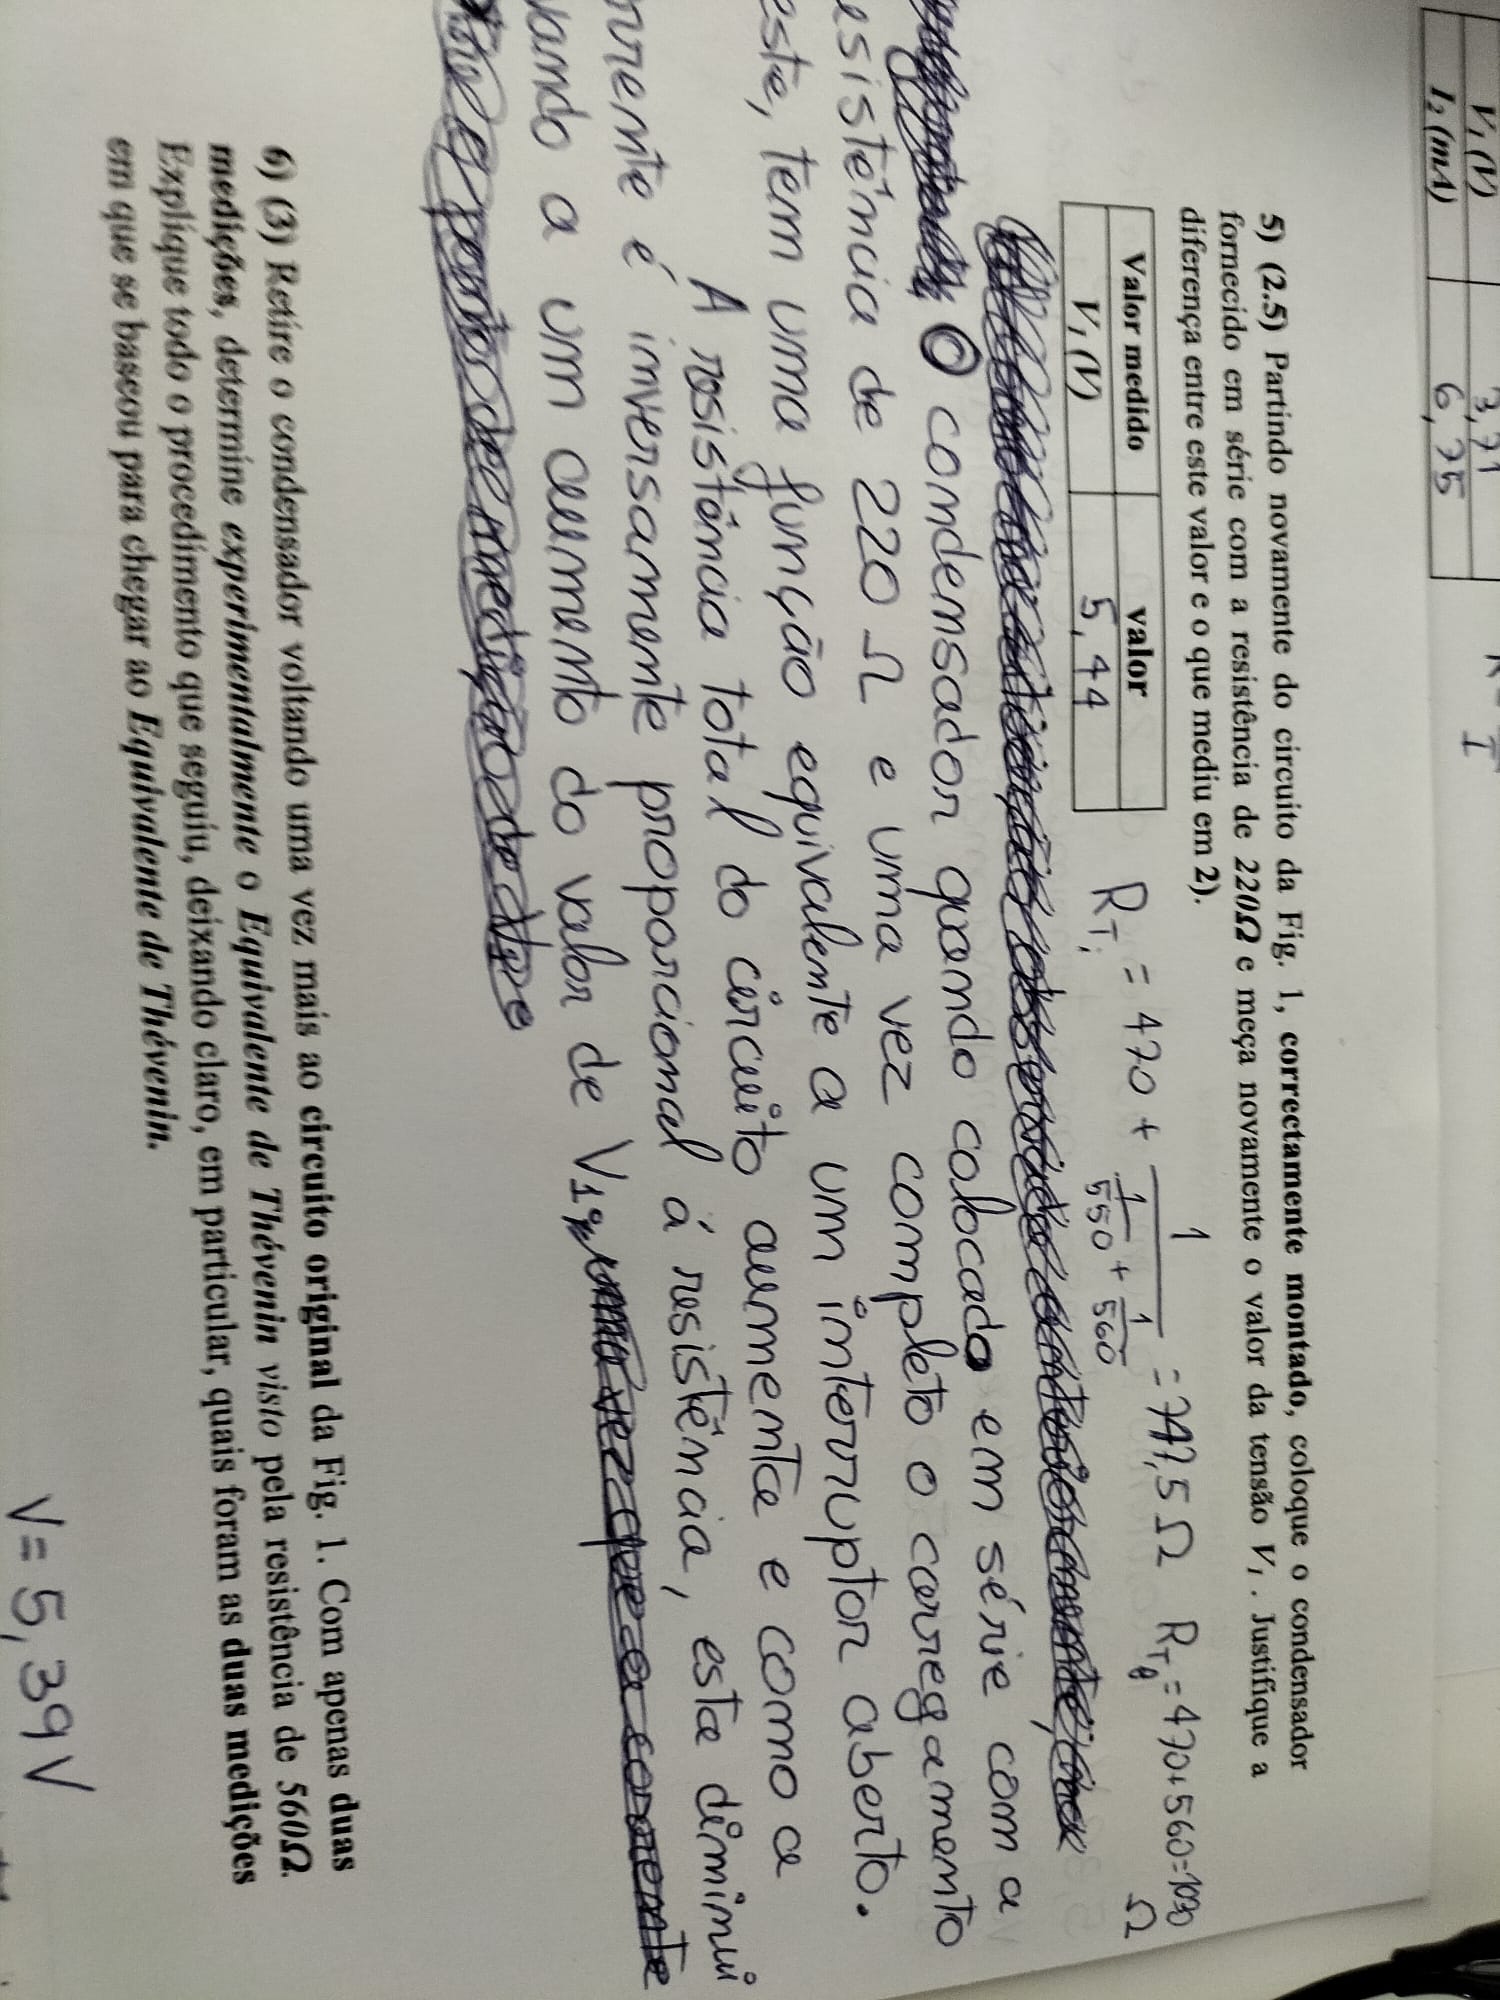 V₁ (V) 3,71
I₂ (mA) 6,75
5) (2.5) Partindo novamente do circuito da Fig. 1, correctamente montado, coloque o condensador
fornecido em série com a resistência de 220Ω e meça novamente o valor da tensão V₁ . Justifique a
diferença entre este valor e o que mediu em 2).
Valor medido valor
V₁ (V) 5,44
R_Ti = 470 + 1/(1/550 + 1/560) = 747,5 Ω R_Tf = 470+560=1030 Ω
O condensador quando colocado em série com a
esistência de 220 Ω e uma vez completo o carregamento
este, tem uma função equivalente a um interruptor aberto.
A resistência total do circuito aumenta e como a
orrente é inversamente proporcional á resistência, esta diminui
vando a um aumento do valor de V₁
6) (3) Retire o condensador voltando uma vez mais ao circuito original da Fig. 1. Com apenas duas
medições, determine experimentalmente o Equivalente de Thévenin visto pela resistência de 560Ω.
Explique todo o procedimento que seguiu, deixando claro, em particular, quais foram as duas medições
em que se baseou para chegar ao Equivalente de Thévenin.
V= 5,39V